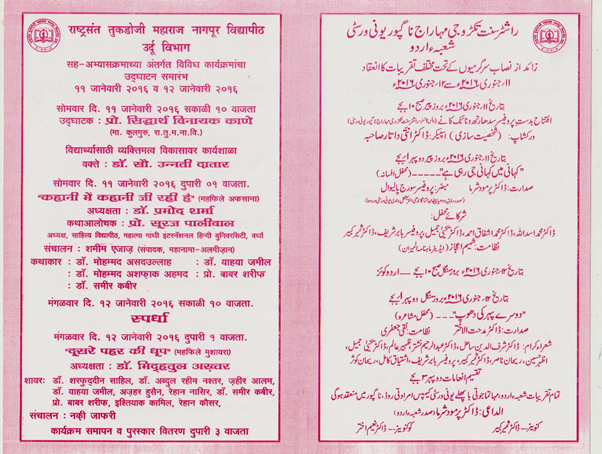 राष्ट्रसंत तुकडोजी महाराज नागपूर विद्यापीठ
उर्दू विभाग
सह-अभ्यासक्रमाच्या अंतर्गत विविध कार्यक्रमांचा
उद्घाटन समारंभ
११ जानेवारी २०१६ व १२ जानेवारी २०१६
सोमवार दि. ११ जानेवारी २०१६ सकाळी १० वाजता
उद्घाटक : प्रो. सिद्धार्थ विनायक काणे
(मा. कुलगुरु, रा.तु.म.ना.वि.)
विद्यार्थ्यासाठी व्यक्तिमत्व विकासावर कार्यशाळा
वक्ते : डॉ. सौ. उन्नती दातार
सोमवार दि. ११ जानेवारी २०१६ दुपारी ०१ वाजता.
"कहानी में कहानी जी रही है" (महफिले अफसाना)
अध्यक्षता : डॉ. प्रमोद शर्मा
कथाआलोचक : प्रो. सूरज पालीवाल
अध्यक्ष, साहित्य विद्यापीठ, महात्मा गांधी इंटरनॅशनल हिन्दी युनिवर्सिटी, वर्धा
संचालन : शमीम एजाज़ (संपादक, महानामा-अलमीज़ान)
कथाकार : डॉ. मोहम्मद असदउल्लाह : डॉ. याहया जमील
: डॉ. मोहम्मद अशफ़ाक़ अहमद : प्रो. बाबर शरीफ
: डॉ. समीर कबीर
मंगळवार दि. १२ जानेवारी २०१६ सकाळी १० वाजता.
स्पर्धा
मंगळवार दि. १२ जानेवारी २०१६ दुपारी १ वाजता.
"दूसरे पहर की धूप" (महफिले मुशायरा)
अध्यक्षता : डॉ. मिदहतुल अख़्तर
शायर: डॉ. शरफुददीन साहिल, डॉ. अब्दुल रहीम नश्तर, ज़हीर आलम,
डॉ. याहया जमील, अज़हर हुसैन, रेहान नासिर, डॉ. समीर कबीर,
प्रो. बाबर शरीफ, इश्तियाक कामिल, रेहान कौसर,
संचालन : नक़ी जाफरी
कार्यक्रम समापन व पुरस्कार वितरण दुपारी ३ वाजता
راشٹرسنت تکڑوجی مہاراج ناگپور یونی ورسٹی
شعبۂ اردو
زائد از نصاب سرگرمیوں کے تحت مختلف تقریبات کا انعقاد
۱۱؍جنوری ۲۰۱۶ء سے ۱۲؍جنوری ۲۰۱۶ء
بتاریخ ۱۱؍جنوری ۲۰۱۶ء بروز پیر صبح ۱۰ بجے
افتتاح بدست پروفیسر سدھارتھ ونائک کانے
ورکشاپ: (شخصیت سازی) اسپیکر: ڈاکٹر انتی داتار صاحبہ
بتاریخ ۱۱؍جنوری ۲۰۱۶ء بروز پیر دوپہر ۱ بجے
"کہانی میں کہانی جی رہی ہے" --- (محفل افسانہ)
صدارت: ڈاکٹر پرمود شرما مبصر: پروفیسر سورج پالیوال
شرکائے محفل:
ڈاکٹر محمد اسد اللہ، ڈاکٹر محمد اشفاق احمد، ڈاکٹر یحییٰ جمیل، پروفیسر بابر شریف، ڈاکٹر سمیر کبیر
نظامت: شمیم اعجاز
بتاریخ ۱۲؍جنوری ۲۰۱۶ء بروز منگل صبح ۱۰ بجے --- اردو کوئز
بتاریخ ۱۲؍جنوری ۲۰۱۶ء بروز منگل دوپہر ۱ بجے
"دوسرے پہر کی دھوپ" --- (محفل مشاعرہ)
صدارت: ڈاکٹر مدحت الاختر نظامت: نقی جعفری
شعراء کرام: ڈاکٹر شرف الدین ساحل، ڈاکٹر عبدالرحیم نشتر، ظہیر عالم، ڈاکٹر یحییٰ جمیل،
اظہر حسین، ریحان ناصر، ڈاکٹر سمیر کبیر، پروفیسر بابر شریف، اشتیاق کامل، ریحان کوثر
تقسیم انعامات دوپہر ۳ بجے
الداعی: ڈاکٹر پرمود شرما (صدر شعبۂ اردو)
کنوینر - ڈاکٹر سمیر کبیر کو کنوینر - ڈاکٹر نعیم اختر